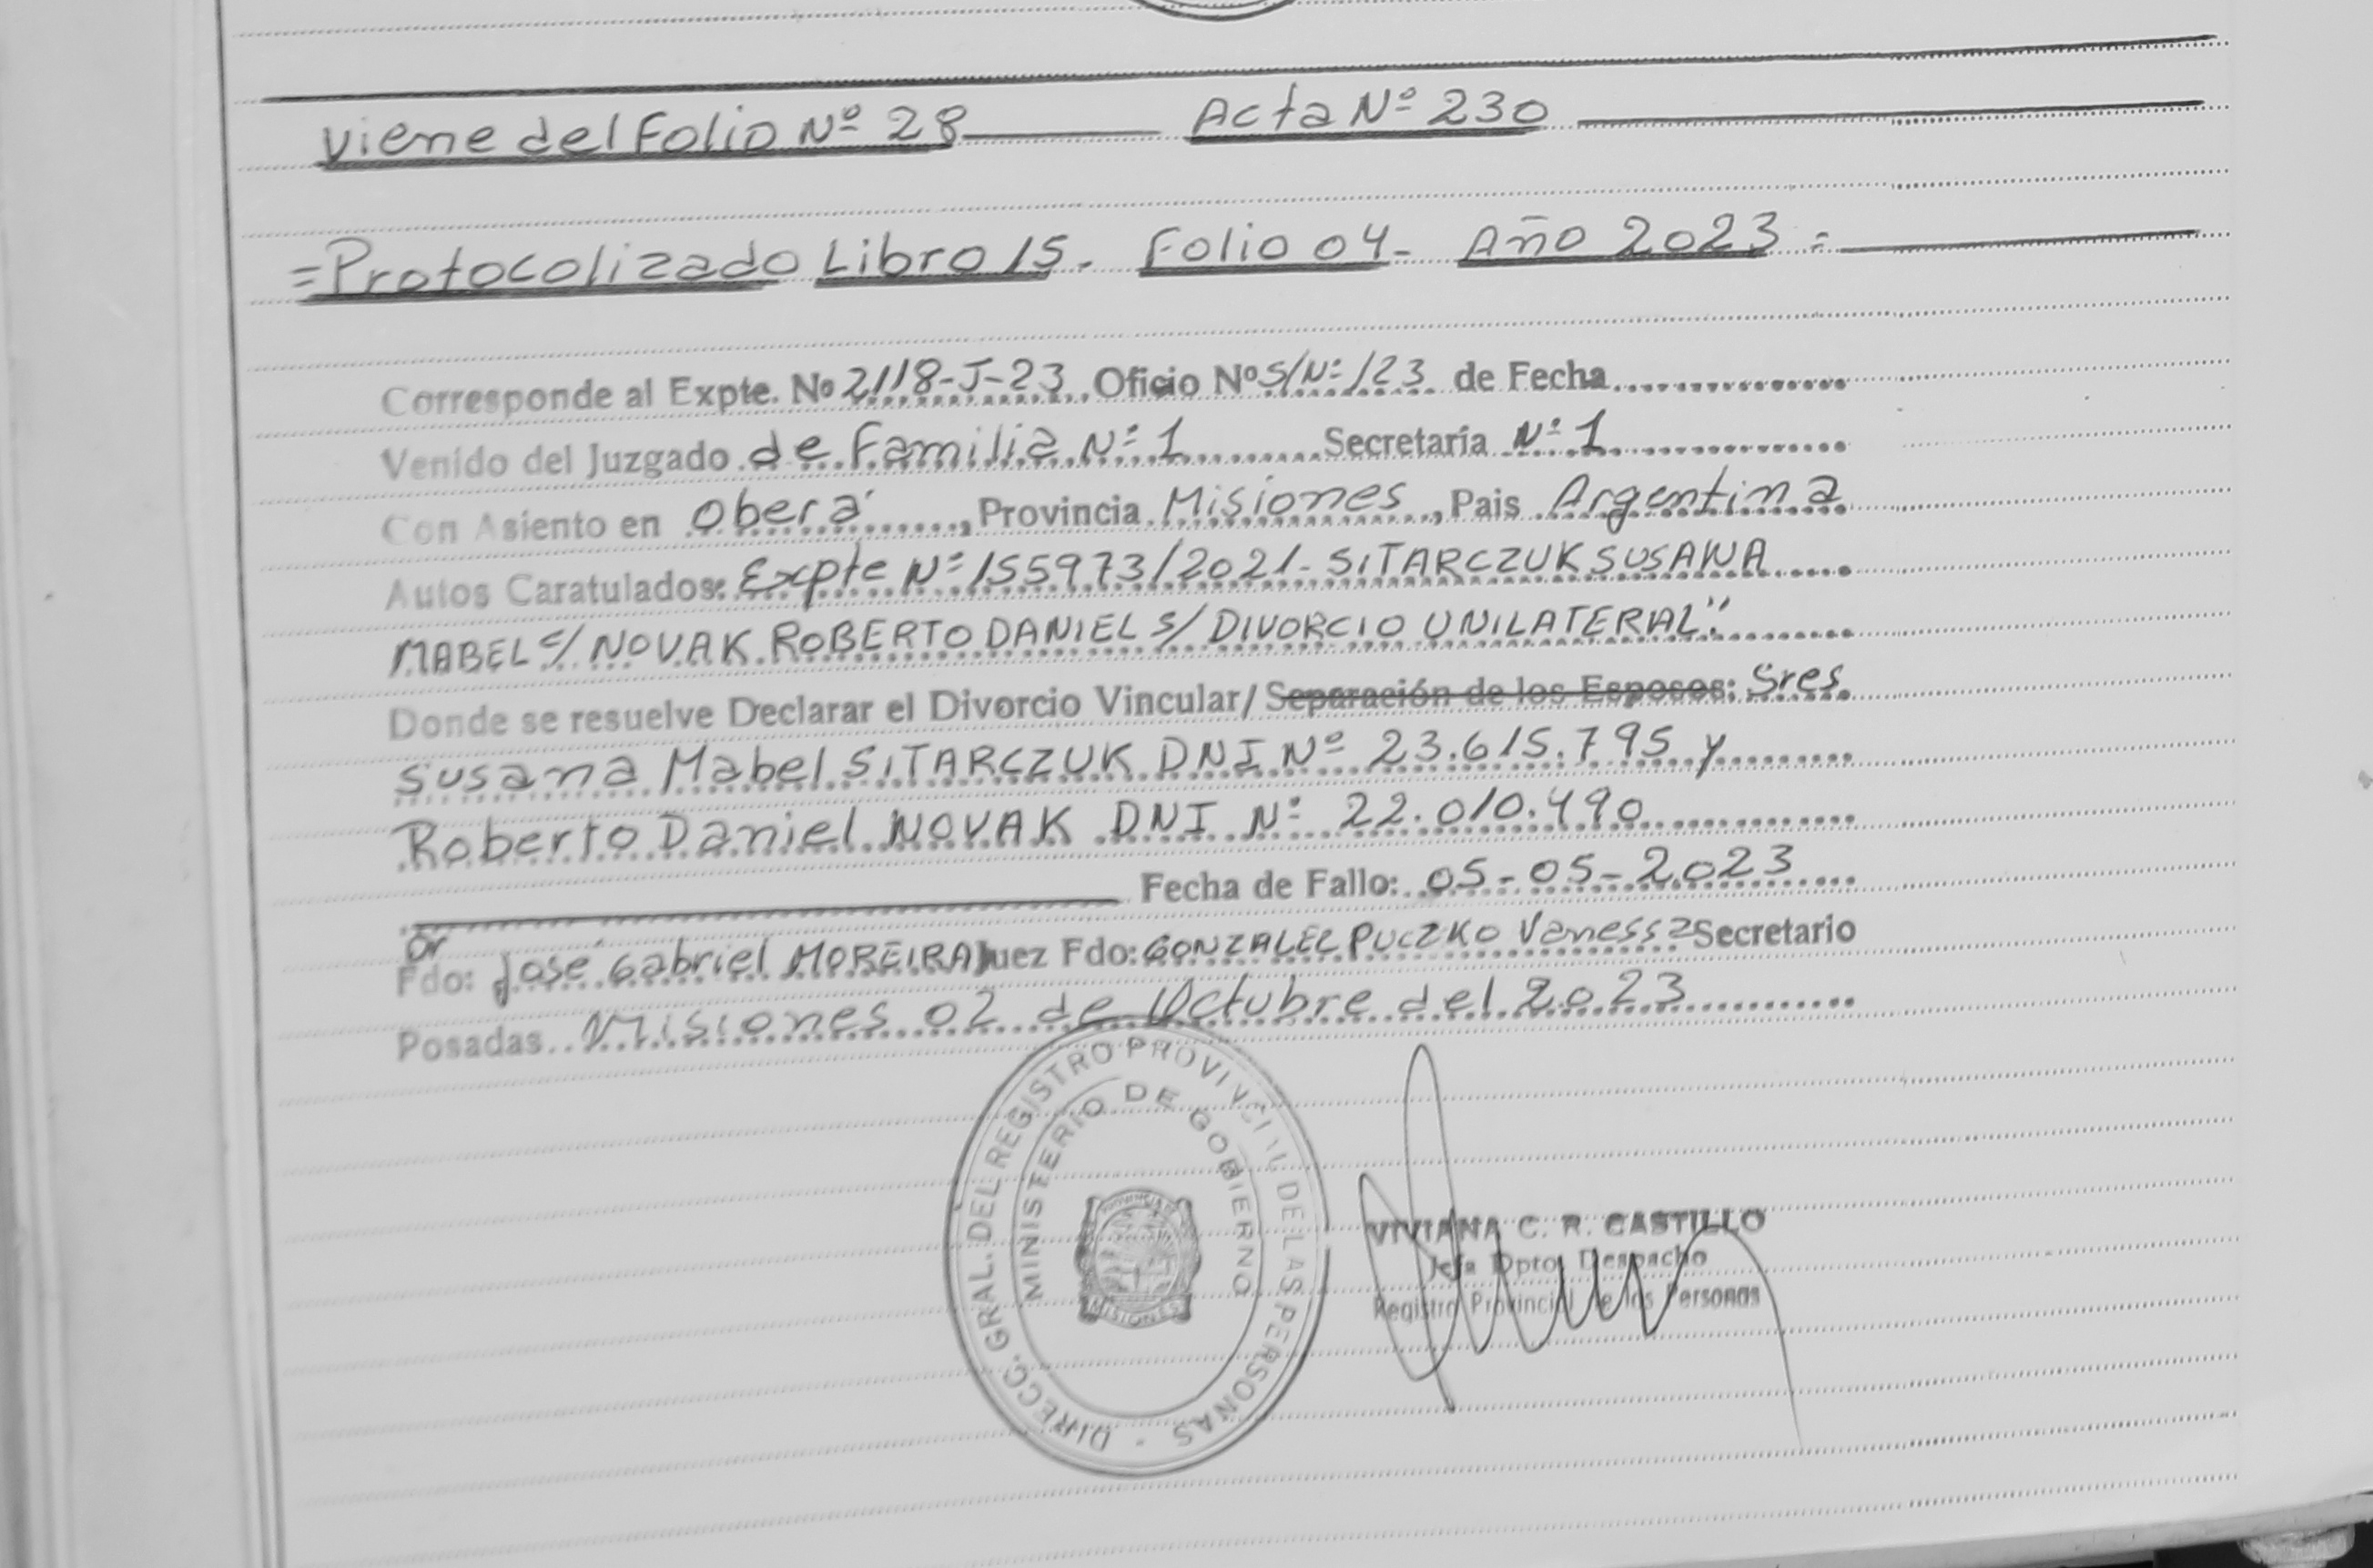 Viene del Folio Nº 28 Acta Nº 230
=Protocolizado Libro 15. Folio 04- Año 2023=
Corresponde al Expte. Nº 2118-J-23 Oficio Nº S/Nº/23 de Fecha
Venido del Juzgado de Familia Nº 1 Secretaría Nº 1
Con Asiento en Oberá, Provincia Misiones, Pais Argentina
Autos Caratulados: Expte Nº 155973/2021- SITARCZUK SUSANA
MABEL c/ NOVAK ROBERTO DANIEL S/ DIVORCIO UNILATERAL".
Donde se resuelve Declarar el Divorcio Vincular/ Separación de los Esposos: Sres
Susana Mabel SITARCZUK DNI Nº 23.615.795 y
Roberto Daniel NOVAK DNI Nº 22.010.490
Fecha de Fallo: 05-05-2023
Dr
Fdo: José Gabriel MOREIRA Juez Fdo: GONZALEZ PUCZKO Vanessa Secretario
Posadas Misiones 02 de Octubre del 2023
DIRECC. GRAL. DEL REGISTRO PROVINCIAL DE LAS PERSONAS -
MINISTERIO DE GOBIERNO
PROVINCIA
MISIONES
VIVIANA C. R. CASTILLO
Jefa Dpto. Despacho
Registro Provincial de las Personas